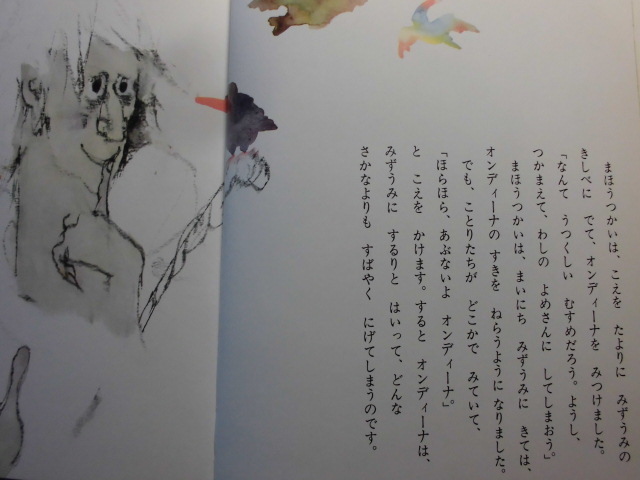 まほうつかいは、こえを たよりに みずうみの
きしべに でて、オンディーナを みつけました。
「なんて うつくしい むすめだろう。ようし、
つかまえて、わしの よめさんに してしまおう」
まほうつかいは、まいにち みずうみに きては、
オンディーナの すきを ねらうように なりました。
でも、ことりたちが どこかで みていて、
「ほらほら、あぶないよ オンディーナ。」
と こえを かけます。すると オンディーナは、
みずうみに するりと はいって、どんな
さかなよりも すばやく にげてしまうのです。